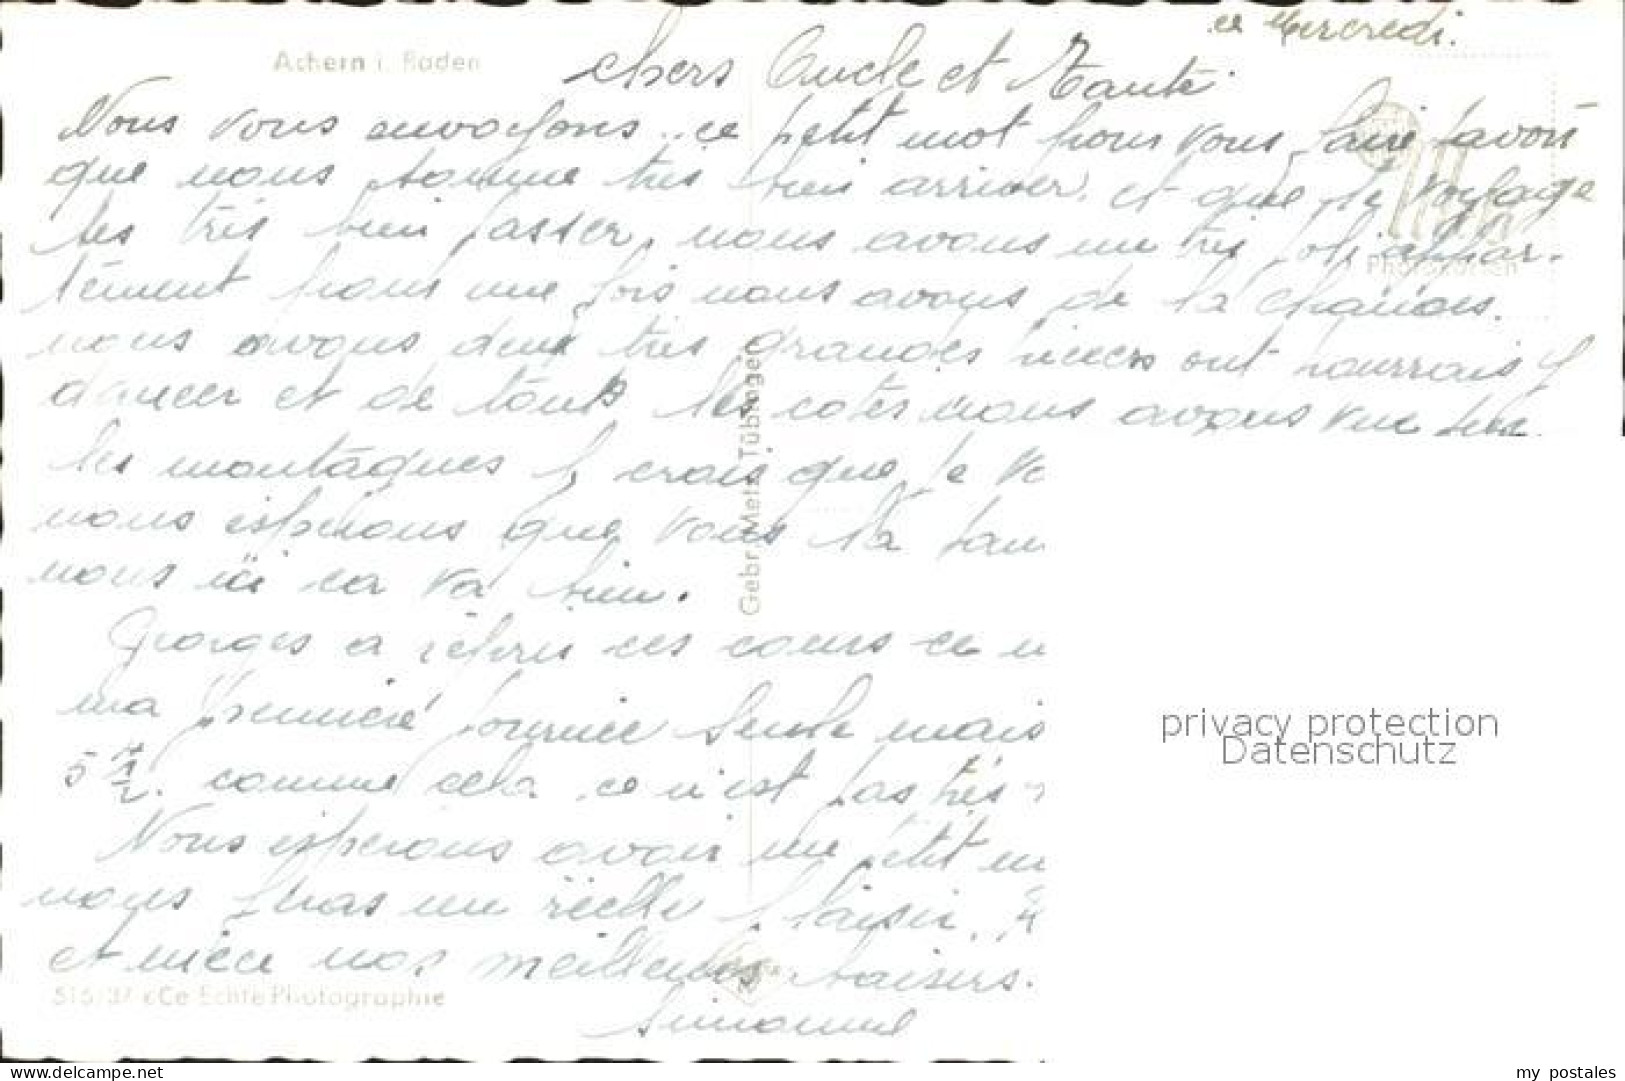 ce Mercredi.
Achern i. Baden
chers Oncle et Tante
Nous vous envoyons ce petit mot pour vous faire savoir
que nous somme très bien arriver. et que le voyage
ses très bien passer, nous avons un très joli appar-
tement pour une fois nous avons de la chances.
nous avons deux très grandes pieces ont pourrais y
dancer et de touts les cotés nous avons vue sur
les montagnes je crois que je
nous esperons que vous la
nous ici ca va bien.
Georges a repris ces cours ce
ma première journée seule mais
5 1/2. comme cela ce n'est pas très
Nous esperons avoir un petit
nous feras un réelle plaisir.
et nièce nos meilleures baisers.
Simonne
Gebr. Metz Tübingen
515/37 cCe Echte Photographie
privacy protection
Datenschutz
www.delcampe.net
my_postales